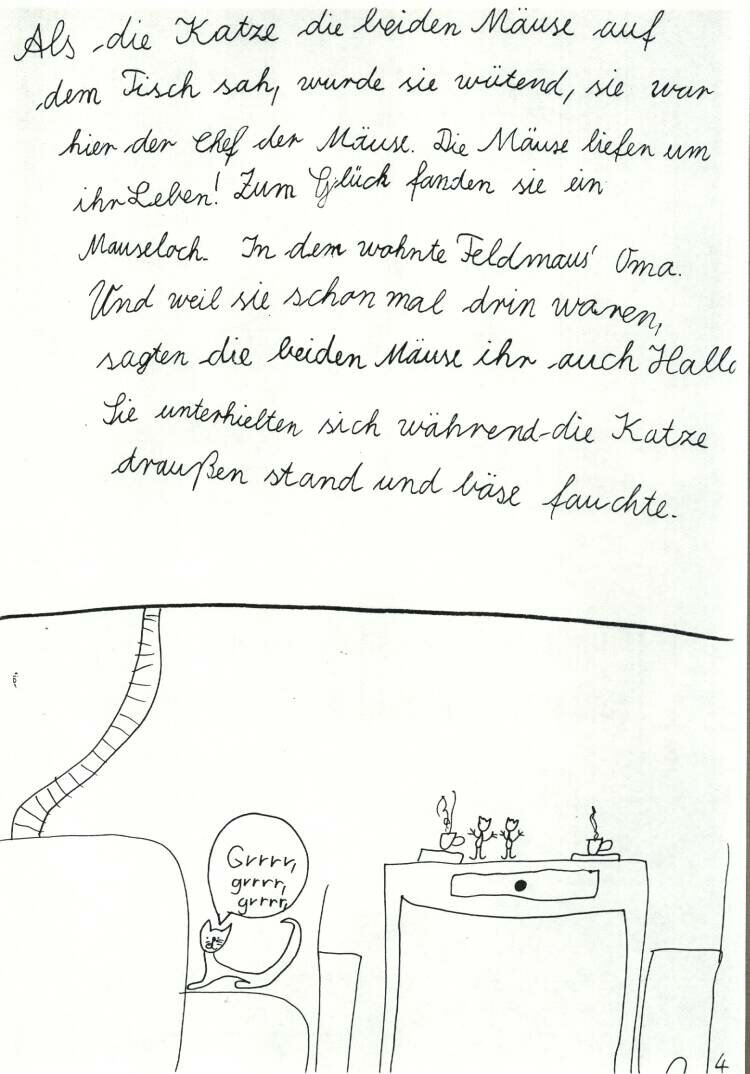 Als die Katze die beiden Mäuse auf
dem Tisch sah, wurde sie wütend, sie war
hier der Chef der Mäuse. Die Mäuse liefen um
ihr Leben! Zum Glück fanden sie ein
Mauseloch. In dem wohnte Feldmaus' Oma.
Und weil sie schon mal drin waren,
sagten die beiden Mäuse ihr auch Hallo
Sie unterhielten sich während die Katze
draußen stand und böse fauchte.
Grrrr,
grrrr,
grrrr,
4